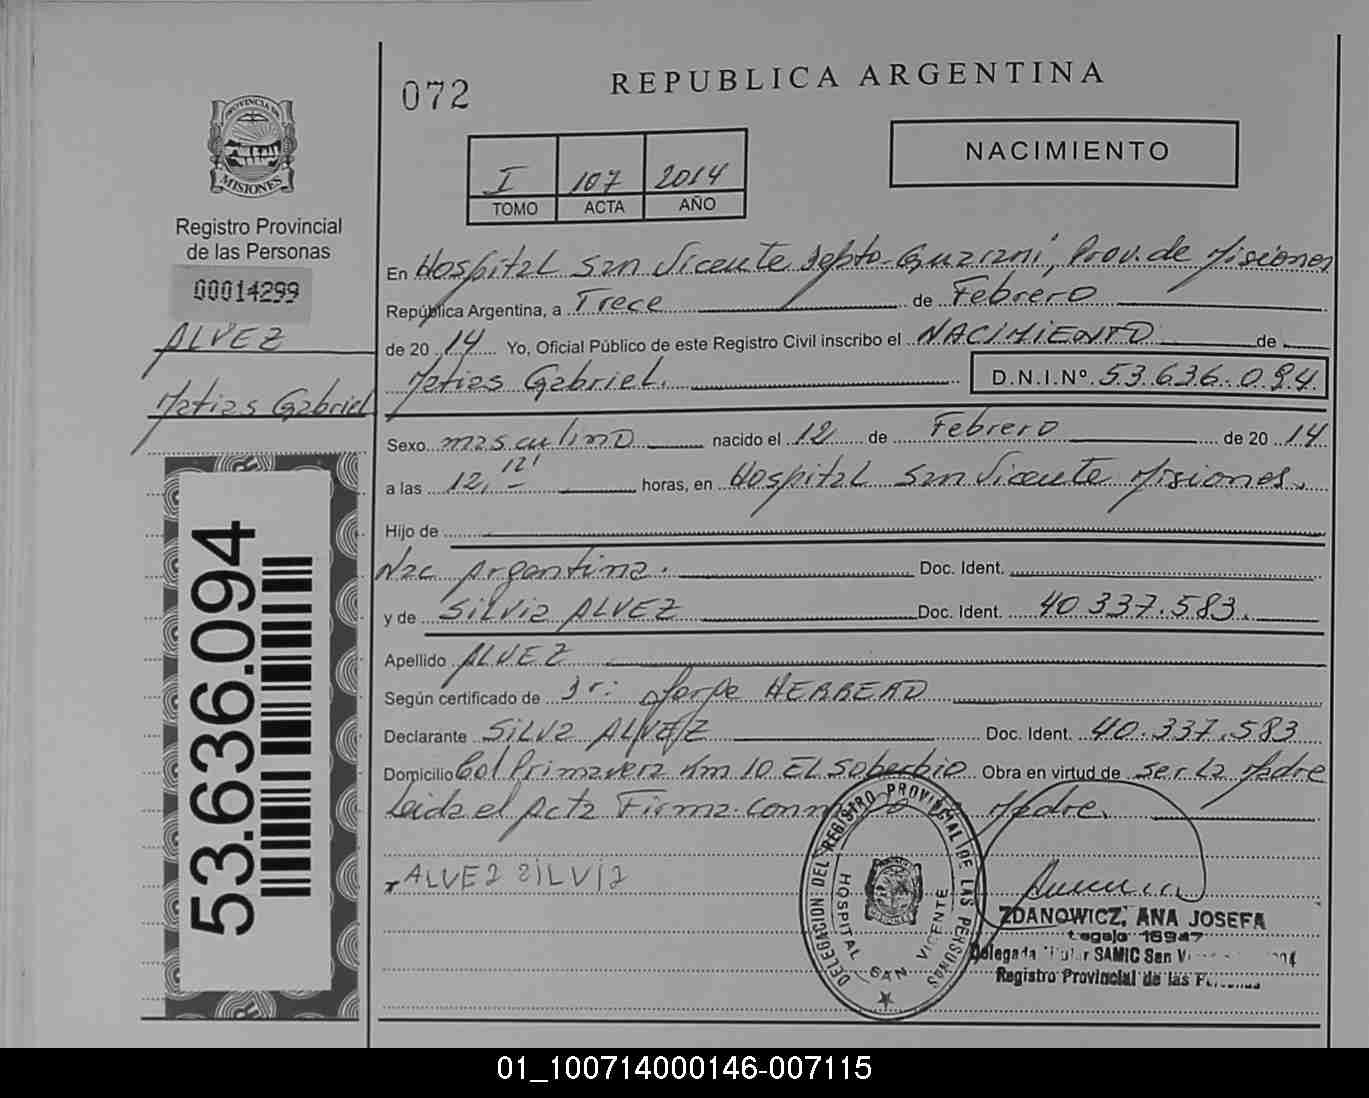 072
REPUBLICA ARGENTINA
PROVINCIA DE
MISIONES
Registro Provincial
de las Personas
00014299
ALVEZ
Matias Gabriel
53.636.094
I 107 2014
TOMO ACTA AÑO
NACIMIENTO
En Hospital San Vicente Depto-Guarani, Prov. de Misiones
República Argentina, a Trece de Febrero
de 20 14 Yo, Oficial Público de este Registro Civil inscribo el NACIMIENTO de
Matias Gabriel. D.N.I.Nº 53.636.094
Sexo masculino nacido el 12 de Febrero de 20 14
a las 12,12' horas, en Hospital San Vicente Misiones.
Hijo de
Nac Argentina. Doc. Ident.
y de Silvia ALVEZ Doc. Ident. 40.337.583.
Apellido ALVEZ
Según certificado de Dr: Jorge
Declarante Silva ALVEZ Doc. Ident. 40.337.583
Domicilio Col Primavera Km 10 El Soberbio Obra en virtud de ser La Madre
Leida el Acta Firma conmigo La Madre.
ALVEZ SILVIA
DELEGACION DEL REGISTRO PROVINCIAL DE LAS PERSONAS
HOSPITAL SAN VICENTE
ZDANOWICZ, ANA JOSEFA
Legajo 16947
Delegada Titular SAMIC San
Registro Provincial de las
01_100714000146-007115